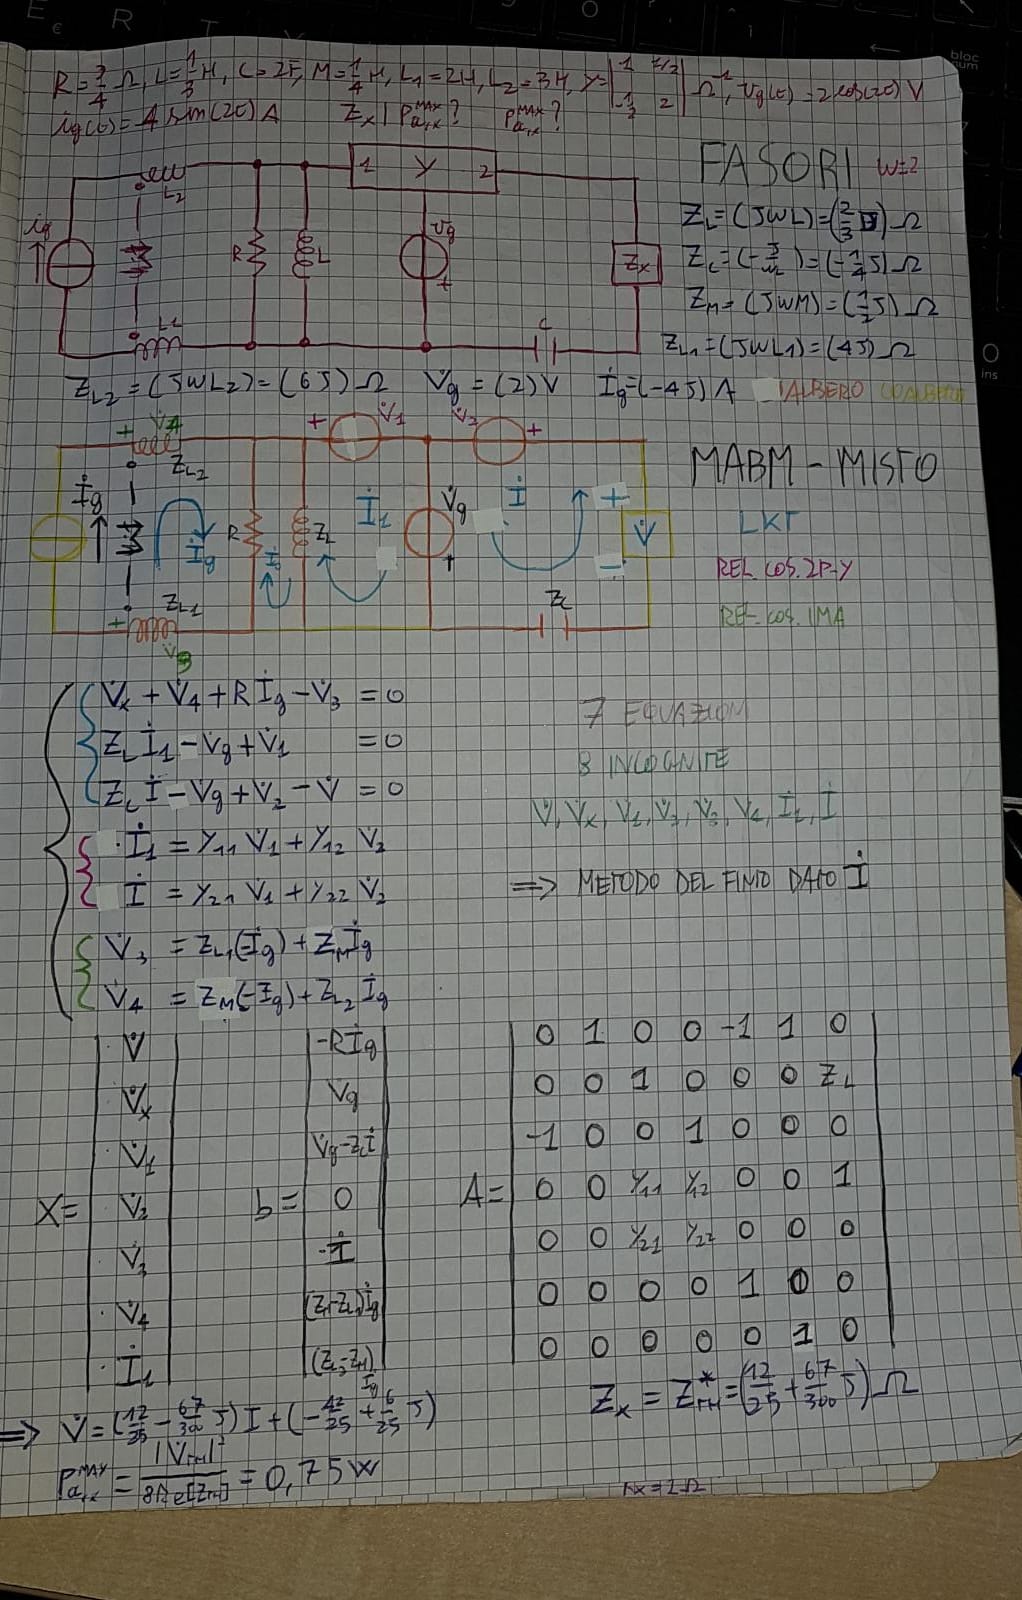 R = 3/4 Ω, L = 1/3 H, C = 2F, M = 1/4 H, L1 = 2H, L2 = 3H, Y = | 1 1/2 | Ω⁻¹, Vg(t) = 2cos(2t) V
-1/3 2
ig(t) = 4 sin(2t) A Zx | Pa,x MAX? Pa,x MAX?
L2
1 Y 2
ig R L Vg + Zx
L1 C
FASORI W=2
ZL = (JWL) = (2/3 J) Ω
Zc = (-J/wc) = (-1/4 J) Ω
ZM = (JWM) = (1/2 J) Ω
ZL1 = (JWL1) = (4J) Ω
ZL2 = (JWL2) = (6J) Ω Vg = (2) V İg = (-4J) A ALBERO COALBERO
+ V4 + V1 V2 +
ZL2
İg İg R İg ZL İ1 Vg + İ + V -
ZL1 Zc
+ V3
MABM - MISTO
LKT
REL. COS. 2P-Y
REL. COS. IMA
Vx + V4 + R İg - V3 = 0
ZL İ1 - Vg + V1 = 0
Zc İ - Vg + V2 - V = 0
İ1 = Y11 V1 + Y12 V2
İ = Y21 V1 + Y22 V2
V3 = ZL1(-İg) + ZM İg
V4 = ZM(-İg) + ZL2 İg
7 EQUAZIONI
8 INCOGNITE
V, Vx, V1, V2, V3, V4, İ1, İ
=> METODO DEL FINTO DATO İ
V -R İg 0 1 0 0 -1 1 0
Vx Vg 0 0 1 0 0 0 ZL
V1 Vg - Zc İ -1 0 0 1 0 0 0
X = V2 b = 0 A = 0 0 Y11 Y12 0 0 1
V3 -İ 0 0 Y21 Y22 0 0 0
V4 0 0 0 0 1 0 0
İ1 0 0 0 0 0 1 0
=> V = (12/25 - 67/300 J) I + (-42/25 + 6/25 J)
Zx = ZTH* = (12/25 + 67/300 J) Ω
Pa,x MAX = |VTH|² / 8Re[ZTH] = 0,75 W